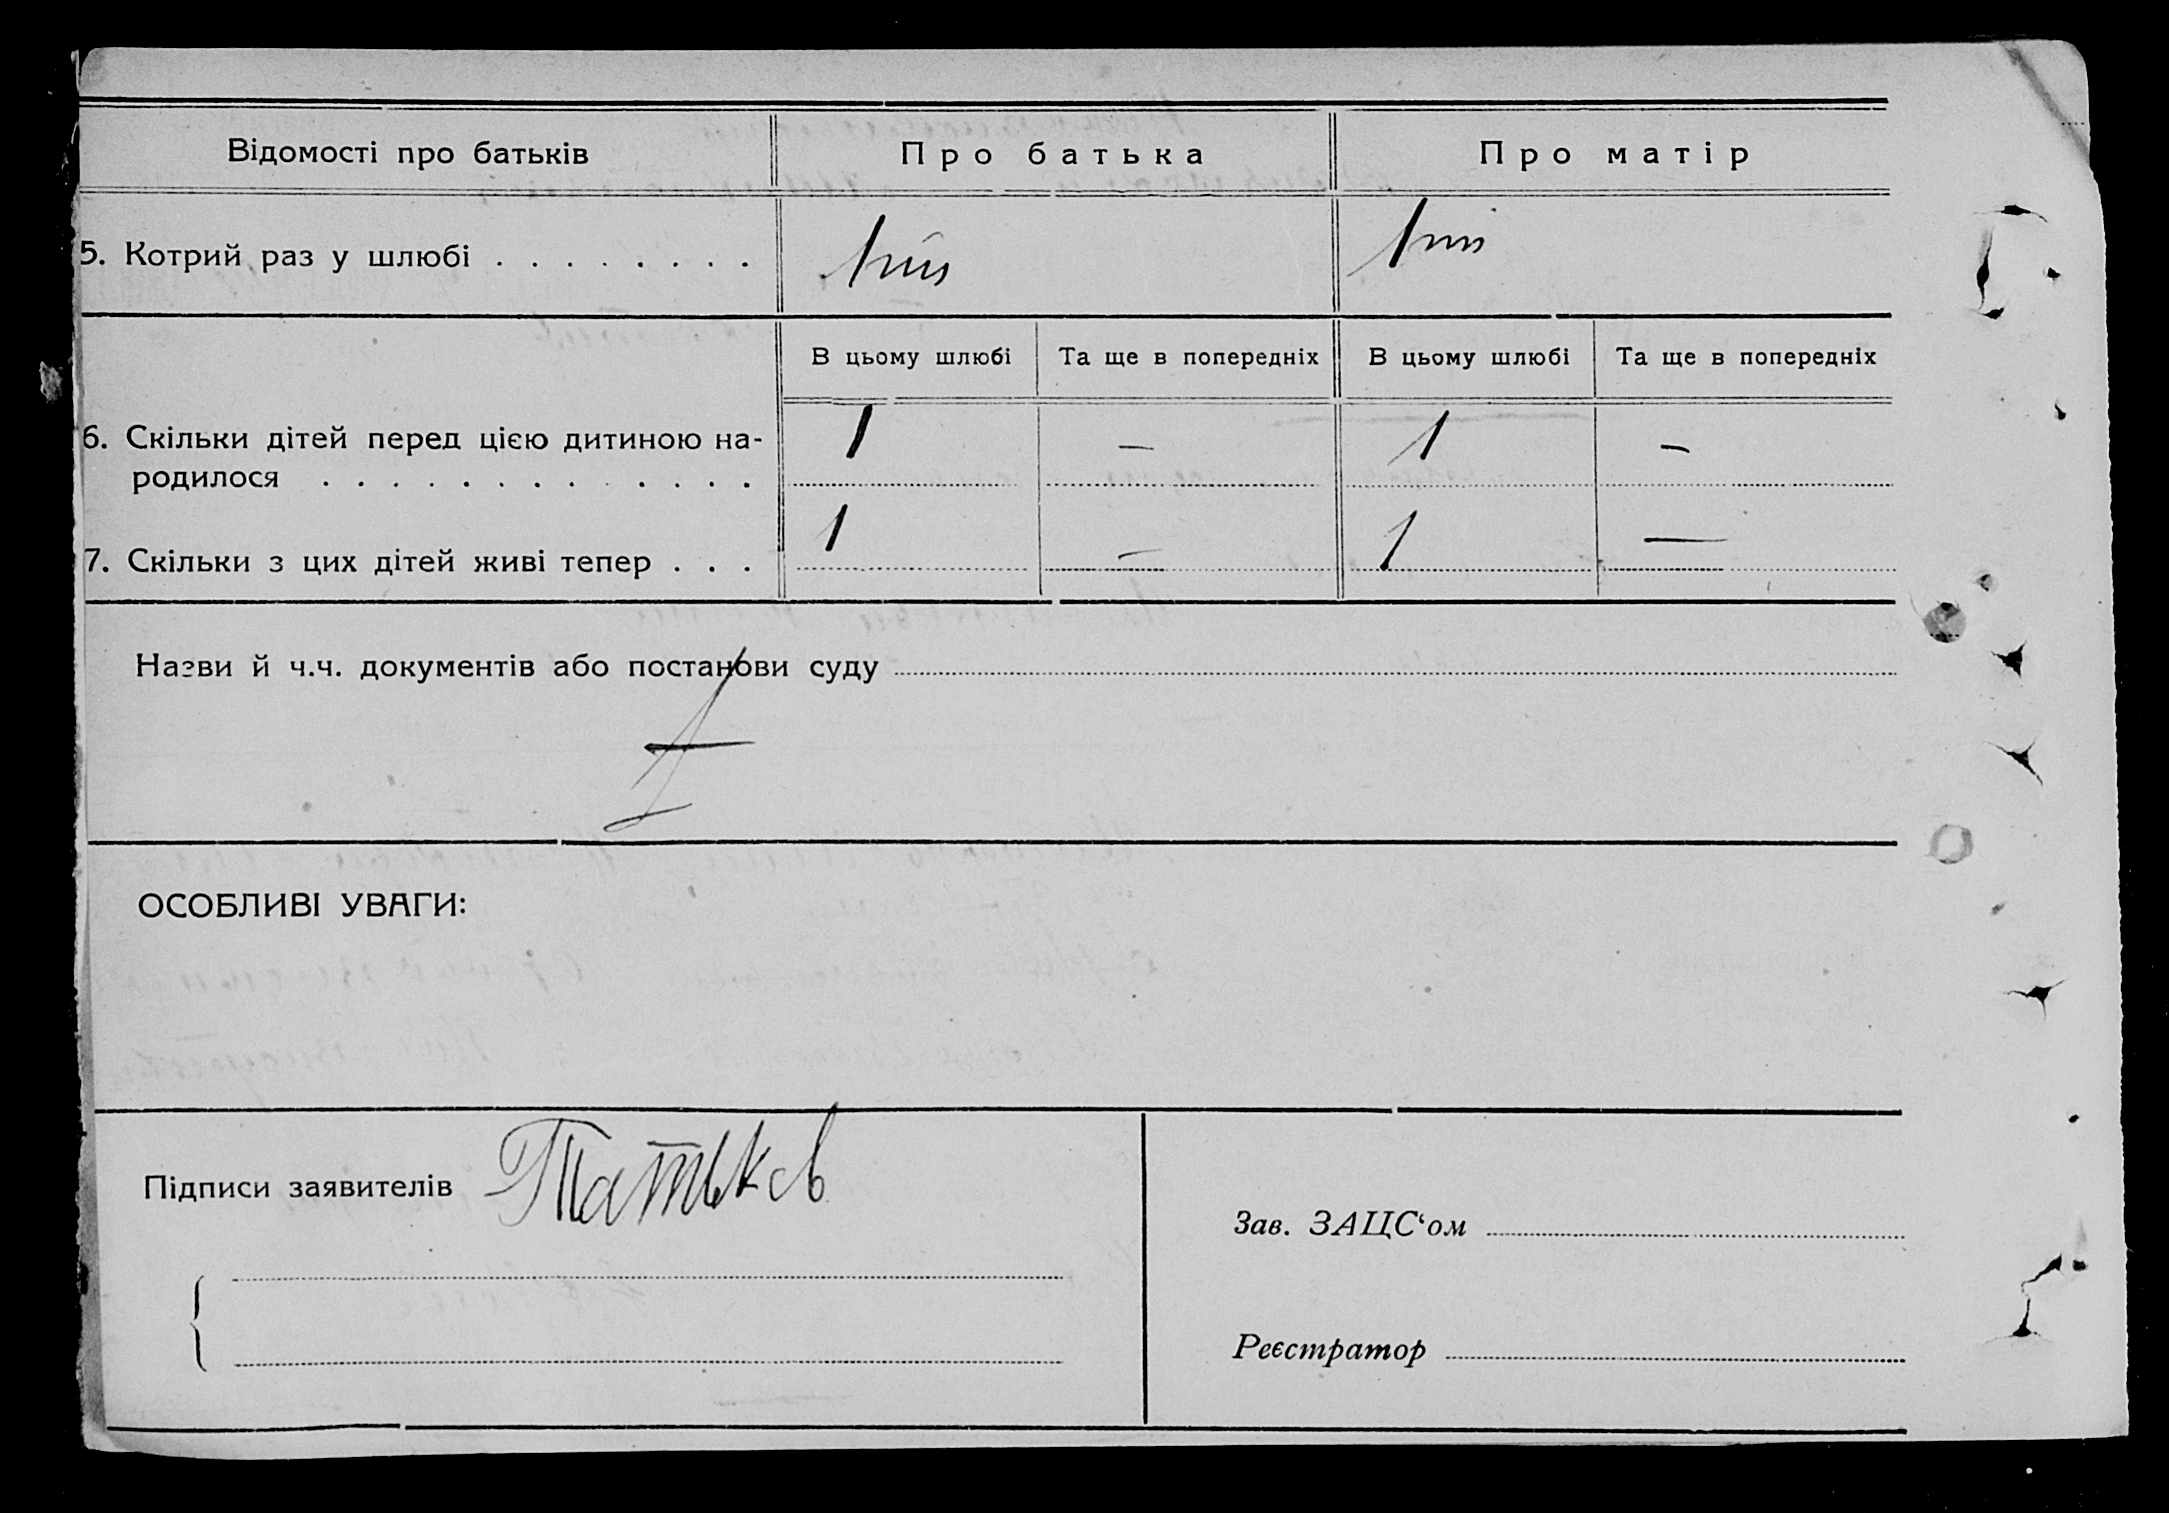 Відомості про батьків Про батька Про матір
5. Котрий раз у шлюбі . . . . . . . .
В цьому шлюбі Та ще в попередніх В цьому шлюбі Та ще в попередніх
6. Скільки дітей перед цією дитиною на- 1 – 1 –
родилося . . . . . . . . . . . . .
7. Скільки з цих дітей живі тепер . . . 1 – 1 —
Назви й ч.ч. документів або постанови суду
ОСОБЛИВІ УВАГИ:
Підписи заявителів
Зав. ЗАЦС‘ом
Реєстратор